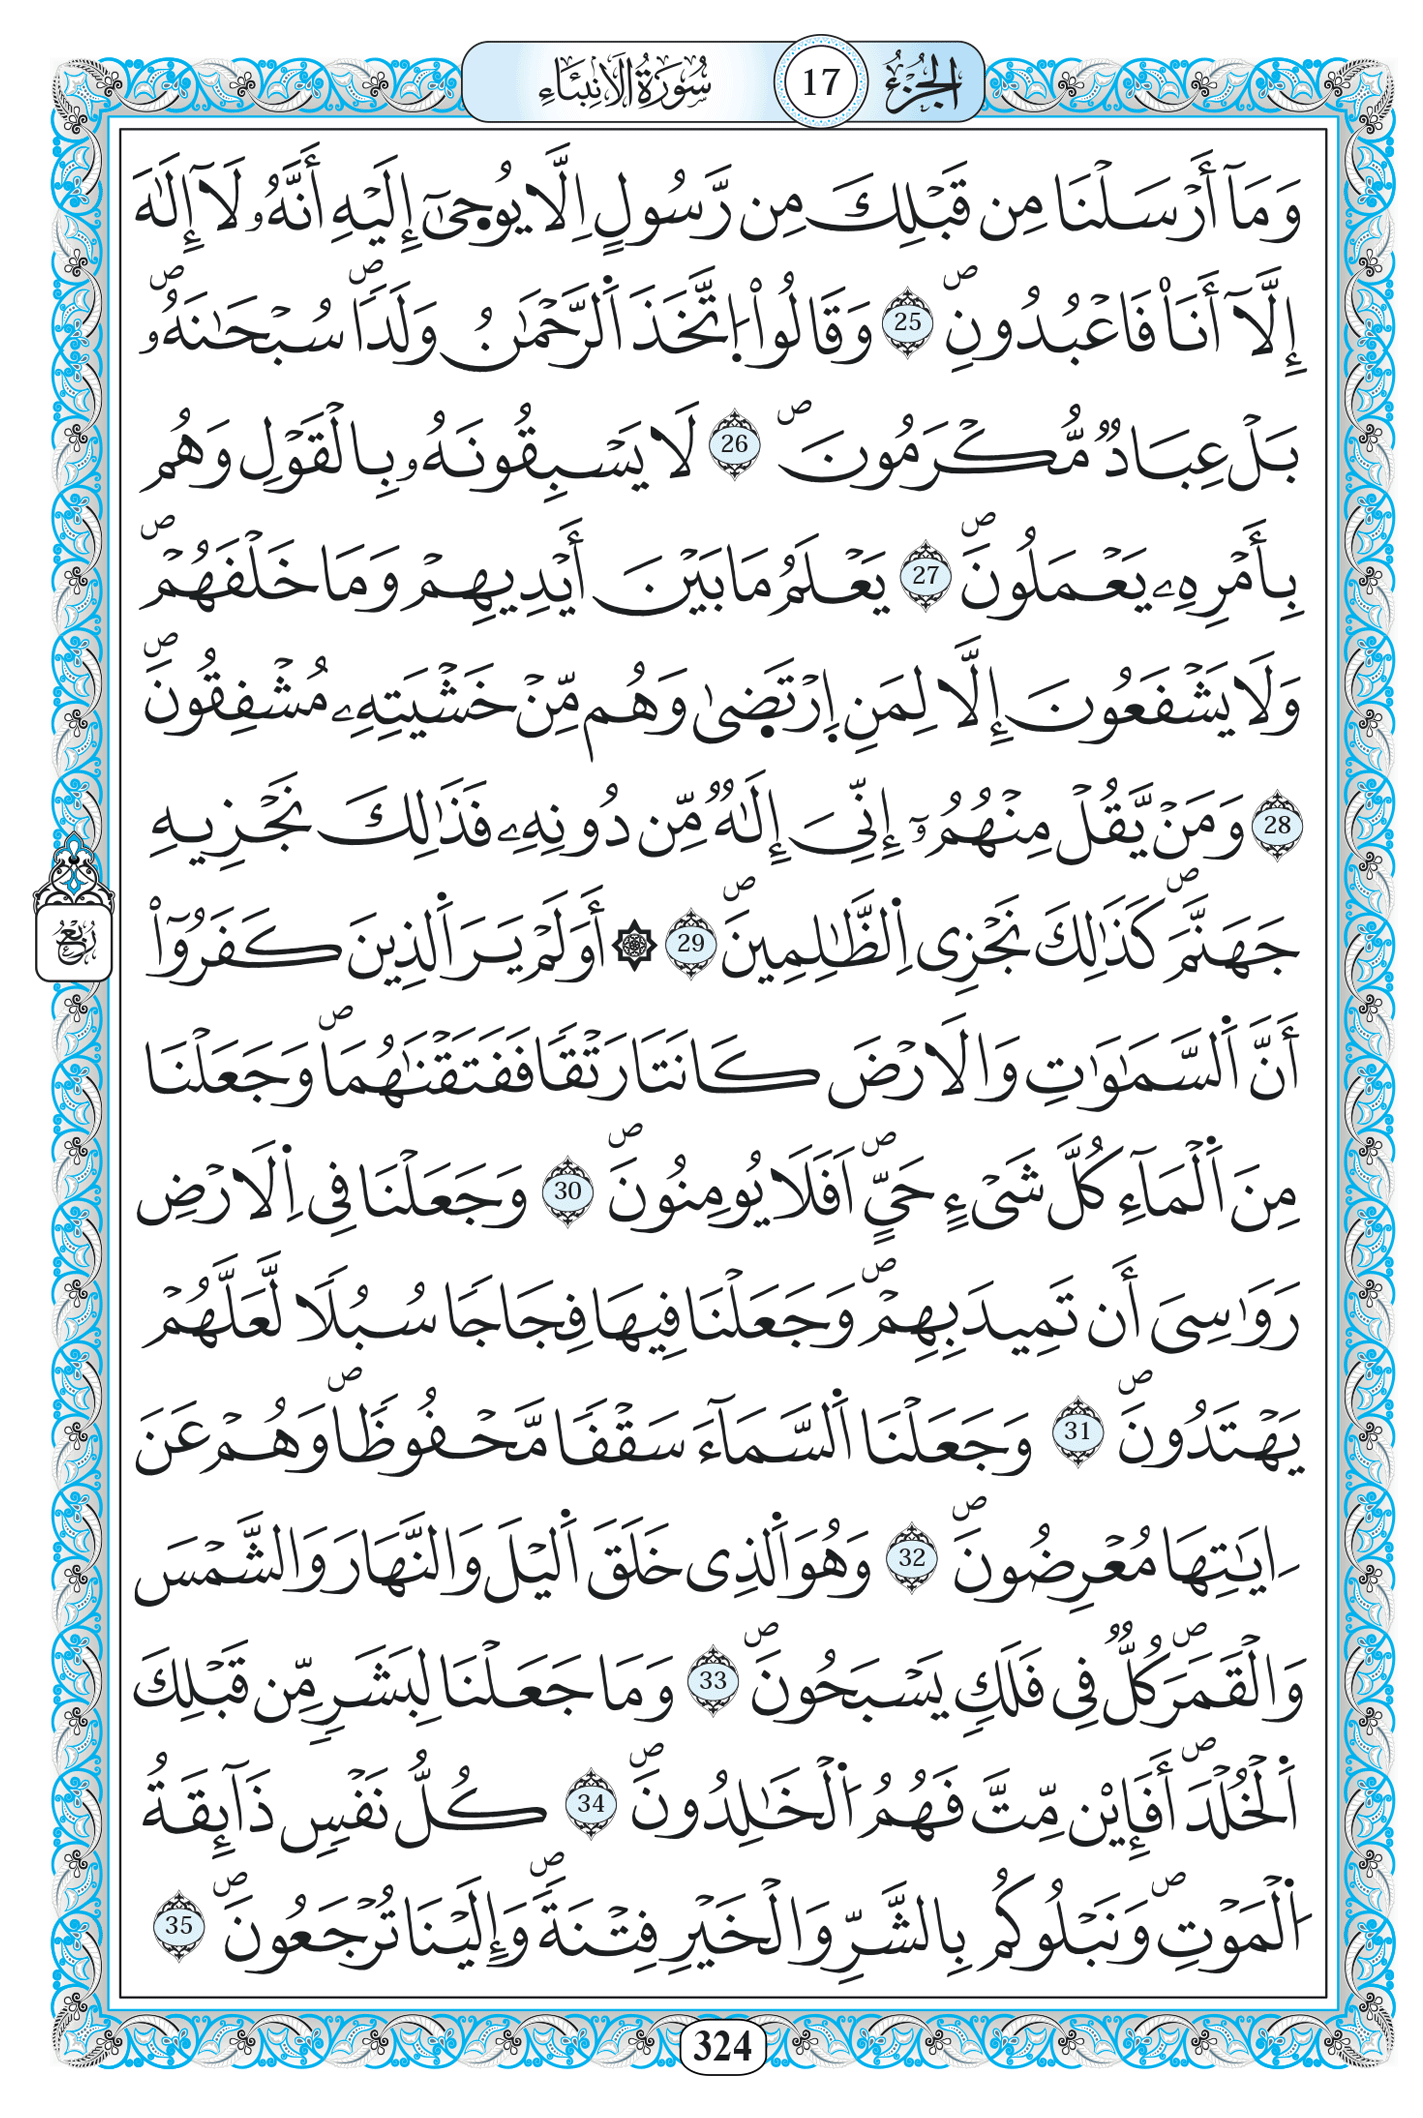 الجزء 17 سورة الأنبياء
وَمَآ أَرْسَلْنَا مِن قَبْلِكَ مِن رَّسُولٍ اِلَّا يُوحَىٰٓ إِلَيْهِ أَنَّهُۥ لَآ إِلَٰهَ
إِلَّآ أَنَا۠ فَاعْبُدُونِۖ 25 وَقَالُواْ اُ۪تَّخَذَ اَ۬لرَّحْمَٰنُ وَلَداٗۖ سُبْحَٰنَهُۥۖ
بَلْ عِبَادٞ مُّكْرَمُونَۖ 26 لَا يَسْبِقُونَهُۥ بِالْقَوْلِ وَهُم
بِأَمْرِهِۦ يَعْمَلُونَۖ 27 يَعْلَمُ مَا بَيْنَ أَيْدِيهِمْ وَمَا خَلْفَهُمْۖ
وَلَا يَشْفَعُونَ إِلَّا لِمَنِ اِ۪رْتَضَىٰ وَهُم مِّنْ خَشْيَتِهِۦ مُشْفِقُونَۖ
28 وَمَنْ يَّقُلْ مِنْهُمُۥٓ إِنِّيَ إِلَٰهٞ مِّن دُونِهِۦ فَذَٰلِكَ نَجْزِيهِ
جَهَنَّمَۖ كَذَٰلِكَ نَجْزِى اِ۬لظَّٰلِمِينَۖ 29 ۞ أَوَلَمْ يَرَ اَ۬لذِينَ كَفَرُوٓاْ
أَنَّ اَ۬لسَّمَٰوَٰتِ وَالَارْضَ كَانَتَا رَتْقاٗ فَفَتَقْنَٰهُمَاۖ وَجَعَلْنَا
مِنَ اَ۬لْمَآءِ كُلَّ شَىْءٍ حَيٍّۖ اَفَلَا يُومِنُونَۖ 30 وَجَعَلْنَا فِى اِ۬لَارْضِ
رَوَٰسِىَ أَن تَمِيدَ بِهِمْۖ وَجَعَلْنَا فِيهَا فِجَاجاٗ سُبُلاٗ لَّعَلَّهُمْ
يَهْتَدُونَۖ 31 وَجَعَلْنَا اَ۬لسَّمَآءَ سَقْفاٗ مَّحْفُوظاٗۖ وَهُمْ عَنَ
ـ ايَٰتِهَا مُعْرِضُونَۖ 32 وَهُوَ اَ۬لذِى خَلَقَ اَ۬ليْلَ وَالنَّهَارَ وَالشَّمْسَ
وَالْقَمَرَۖ كُلّٞ فِى فَلَكٖ يَسْبَحُونَۖ 33 وَمَا جَعَلْنَا لِبَشَرٖ مِّن قَبْلِكَ
اَ۬لْخُلْدَۖ أَفَإِيْن مِّتَّ فَهُمُ اُ۬لْخَٰلِدُونَۖ 34 كُلُّ نَفْسٖ ذَآئِقَةُ
اُ۬لْمَوْتِۖ وَنَبْلُوكُم بِالشَّرِّ وَالْخَيْرِ فِتْنَةٗۖ وَإِلَيْنَا تُرْجَعُونَۖ 35
ربع
324